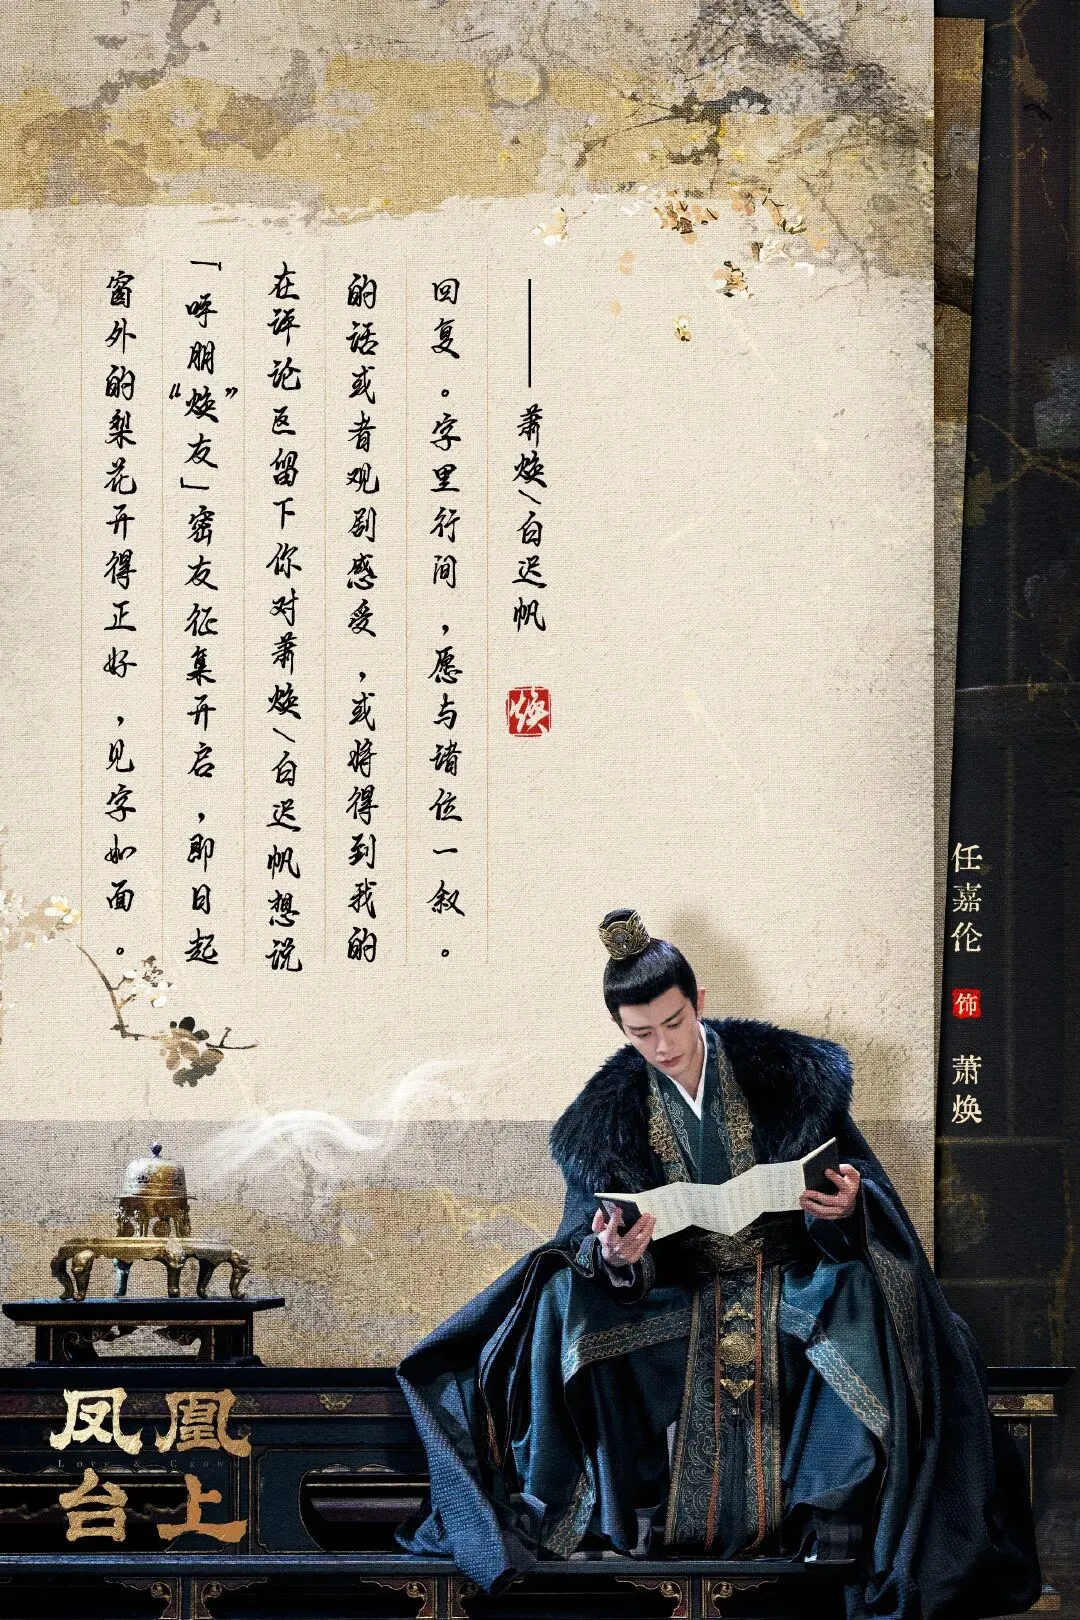 窗外的梨花开得正好，见字如面。
「呼朋“焕友”」密友征集开启，即日起
在评论区留下你对萧焕/白迟帆想说
的话或者观剧感受，或将得到我的
回复。字里行间，愿与诸位一叙。
——萧焕/白迟帆
焕
任嘉伦 饰 萧焕
凤凰
LOVE & CROWN
台上